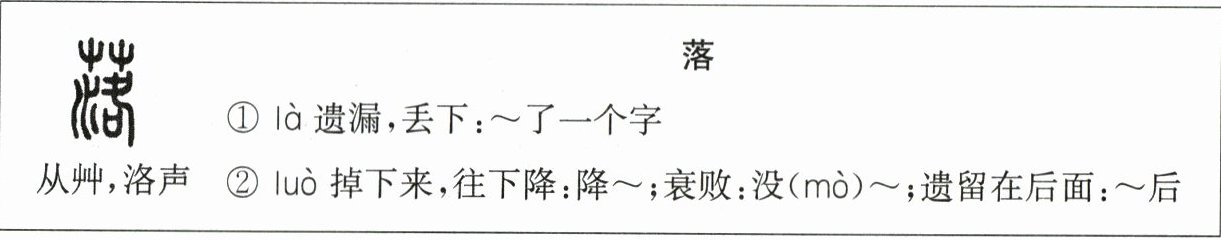 落
落
① là 遗漏,丢下:～了一个字
从艸,洛声 ② luò 掉下来,往下降:降～;衰败:没(mò)～;遗留在后面:～后